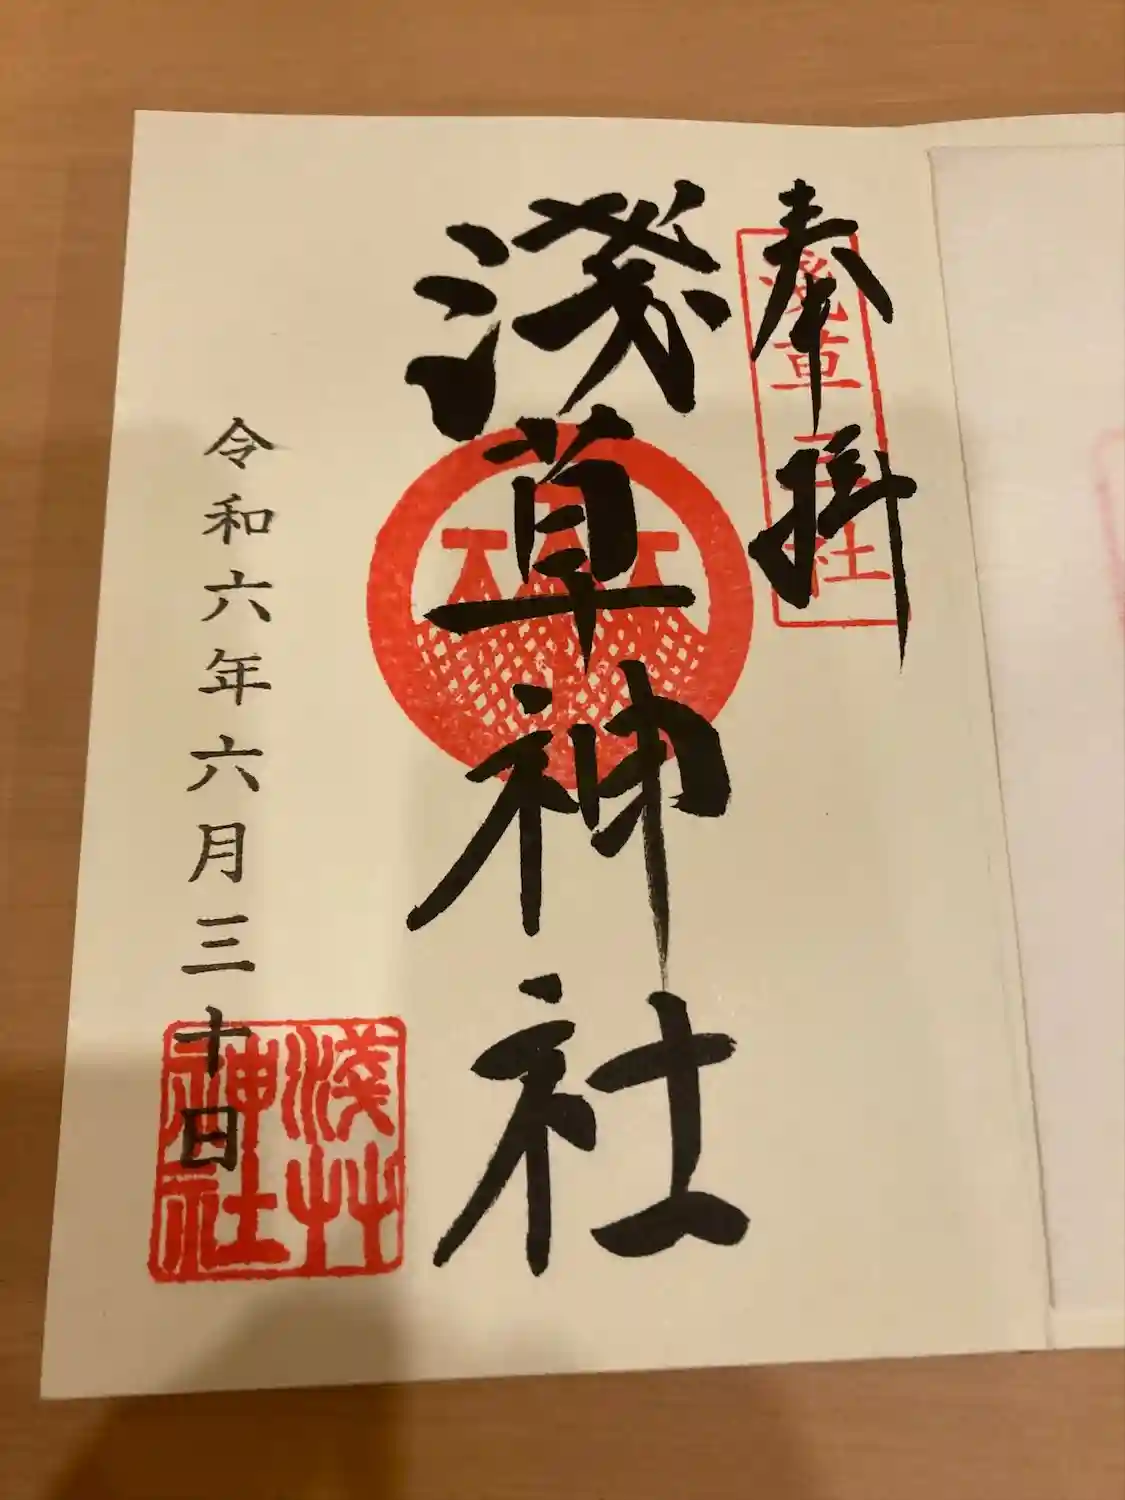 奉拝
淺草三社
淺草神社
令和六年六月三十日
淺草神社